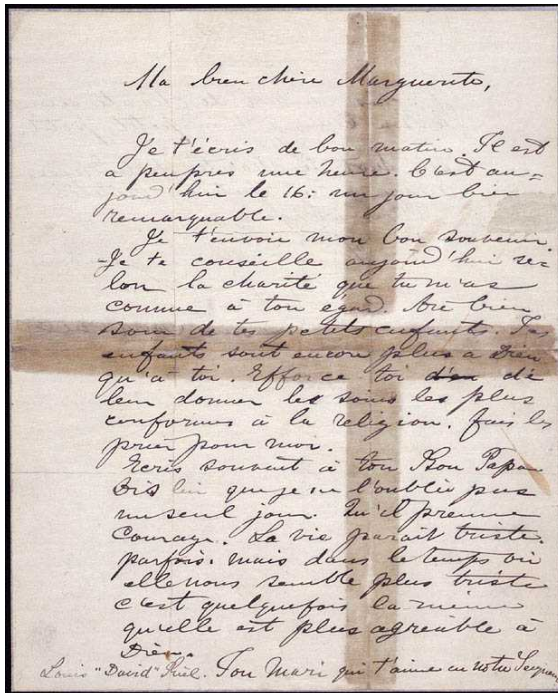 Ma bien chère Marguerite,
Je t'écris de bon matin. Il est
a peuprès une heure. C'est au=
jourd'hui le 16: un jour bien
remarquable.
Je t'envoie mon bon souvenir.
Je te conseille aujourd'hui se-
lon la charité que tu m'as
connue à ton égard. Aie bien
soin de tes petits enfants. Tes
enfants sont encore plus a Dieu
qu'à toi. Efforce toi de
leur donner les soins les plus
conformes à la religion. fais les
prier pour moi.
Ecris souvent à ton Bon Papa
Dis lui que je ne l'oublie pas
un seul jour. Qu'il prenne
courage. La vie parait triste
parfois. mais dans le temps où
elle nous semble plus triste
c'est quelquefois la même
qu'elle est plus agréable à
Dieu.
Louis "David" Riel. Ton Mari qui t'aime en notre